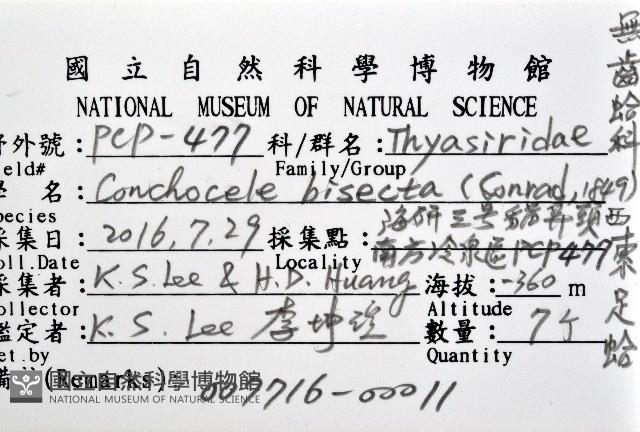 國立自然科學博物館
NATIONAL MUSEUM OF NATURAL SCIENCE
野外號：PCP-477 科/群名：Thyasiridae
Field# Family/Group
學 名：Conchocele bisecta (Conrad, 1849)
Species
海研三号
採集日：2016.7.29 採集點：南方冷泉區 PCP477
Coll.Date Locality
採集者：K.S.Lee & H.D. Huang 海拔：-360 m
Collector Altitude
鑑定者：K. S. Lee 李坤瑄 數量：7个
Det.by Quantity
備註(Remarks) 007716-00011
國立自然科學博物館
NATIONAL MUSEUM OF NATURAL SCIENCE
無齒蛤科
東足蛤